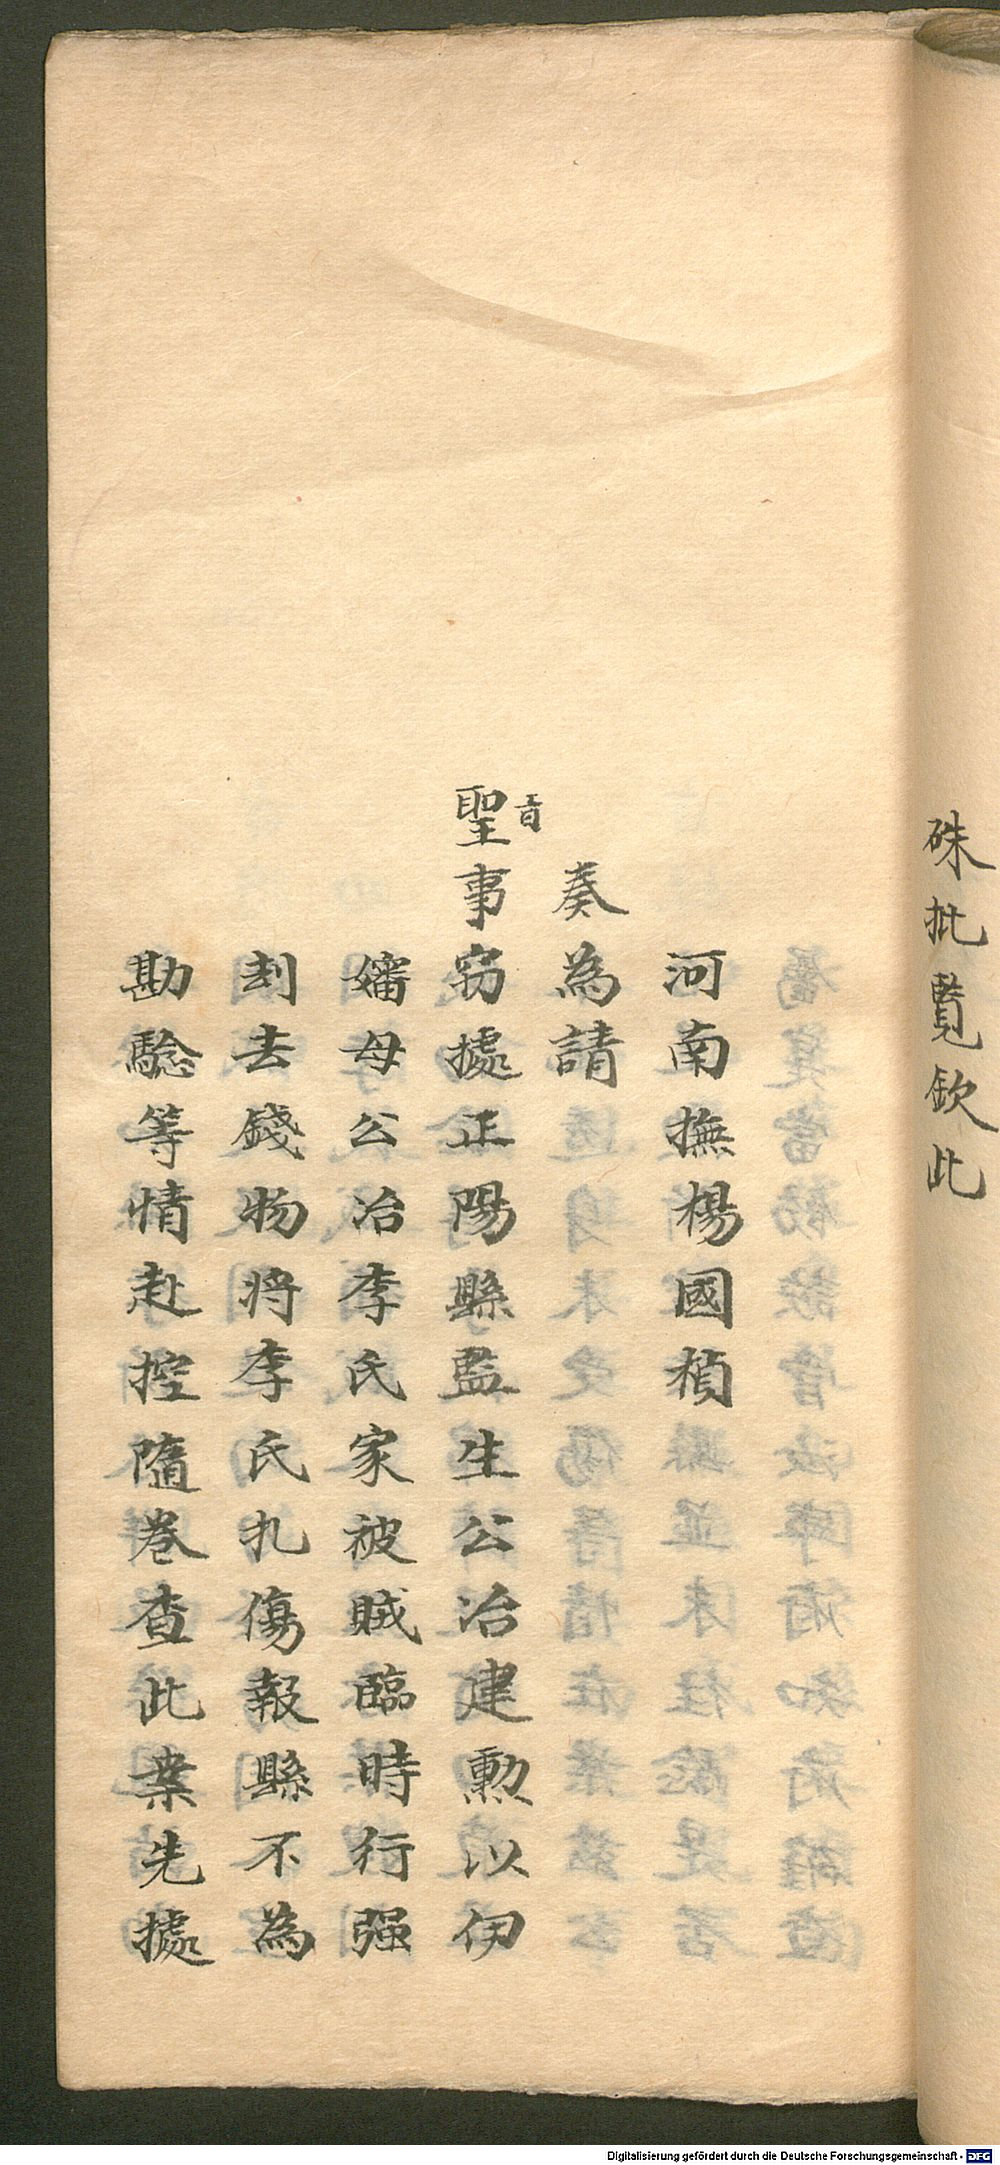 硃批覽欽此
河南撫楊國楨
奏為請
旨
聖事竊據正陽縣監生公冶建勳以伊
嬸母公冶李氏家被賊臨時行强
刦去錢物將李氏扎傷報縣不為
勘騐等情赴控隨卷查此案先據
Digitalisierung gefördert durch die Deutsche Forschungsgemeinschaft - DFG